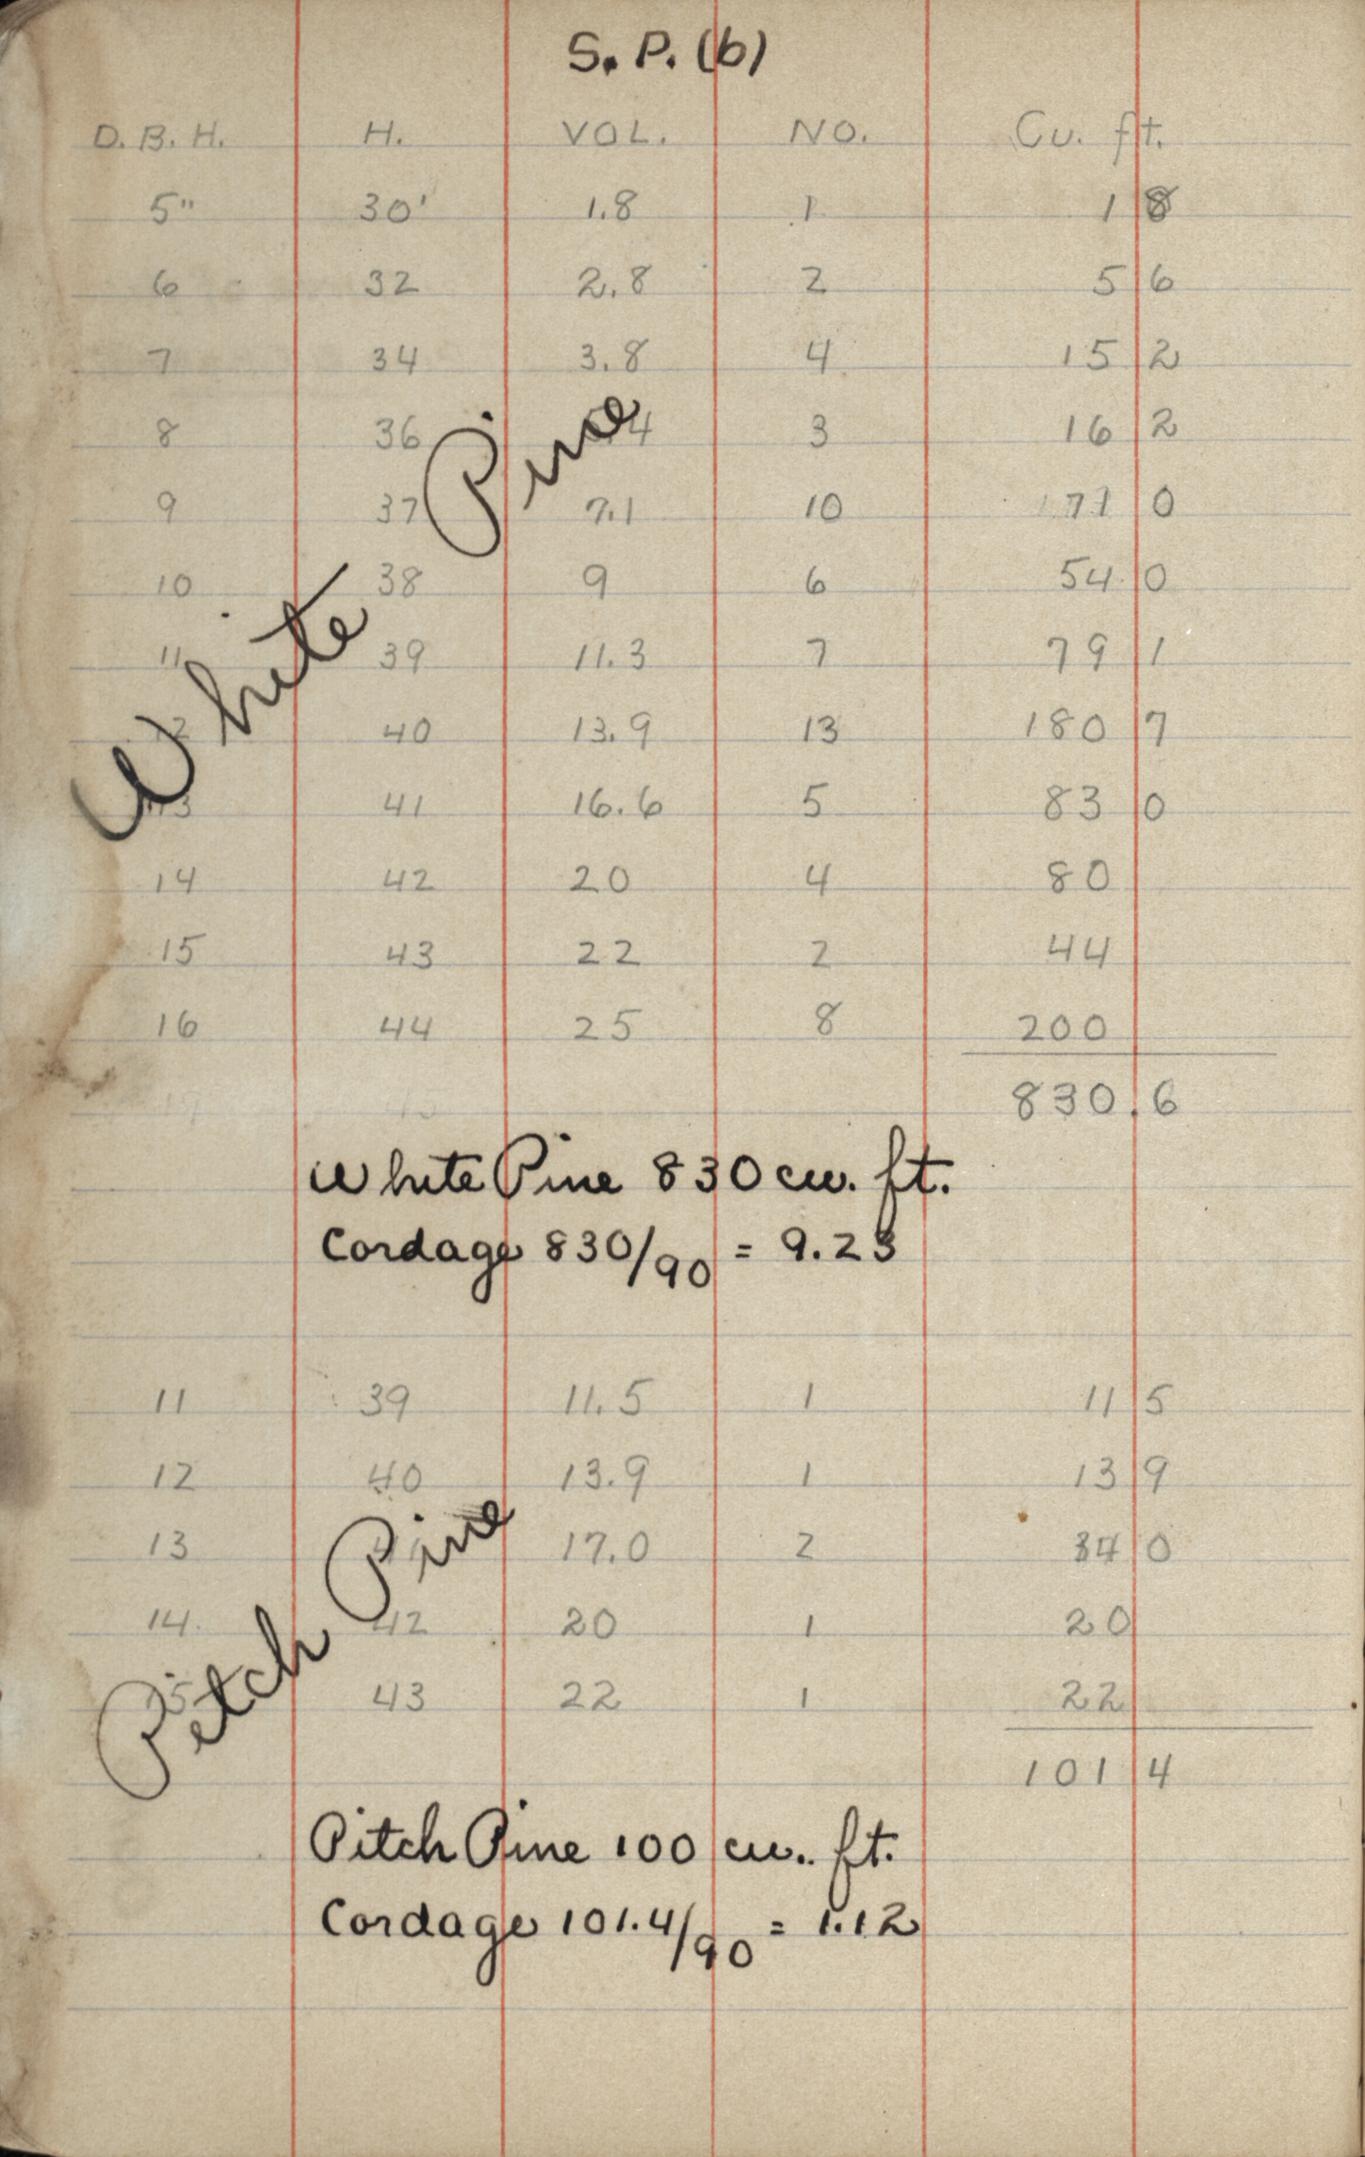 S. P. (b)
D. B. H. H. VOL. NO. Cu. ft.
5" 30' 1.8 1 1 8
6 32 2.8 2 5 6
7 34 3.8 4 15 2
8 36 4 3 16 2
9 37 7.1 10 71 0
10 38 9 6 54 0
11 39 11.3 7 79 1
12 40 13.9 13 180 7
13 41 16.6 5 83 0
14 42 20 4 80
15 43 22 2 44
16 44 25 8 200
830.6
White Pine
White Pine 830 cu. ft.
Cordage 830/90 = 9.23
11 39 11.5 1 11 5
12 40 13.9 1 13 9
13 17.0 2 34 0
14 42 20 1 20
15 43 22 1 22
101 4
Pitch Pine
Pitch Pine 100 cu. ft.
Cordage 101.4/90 = 1.12